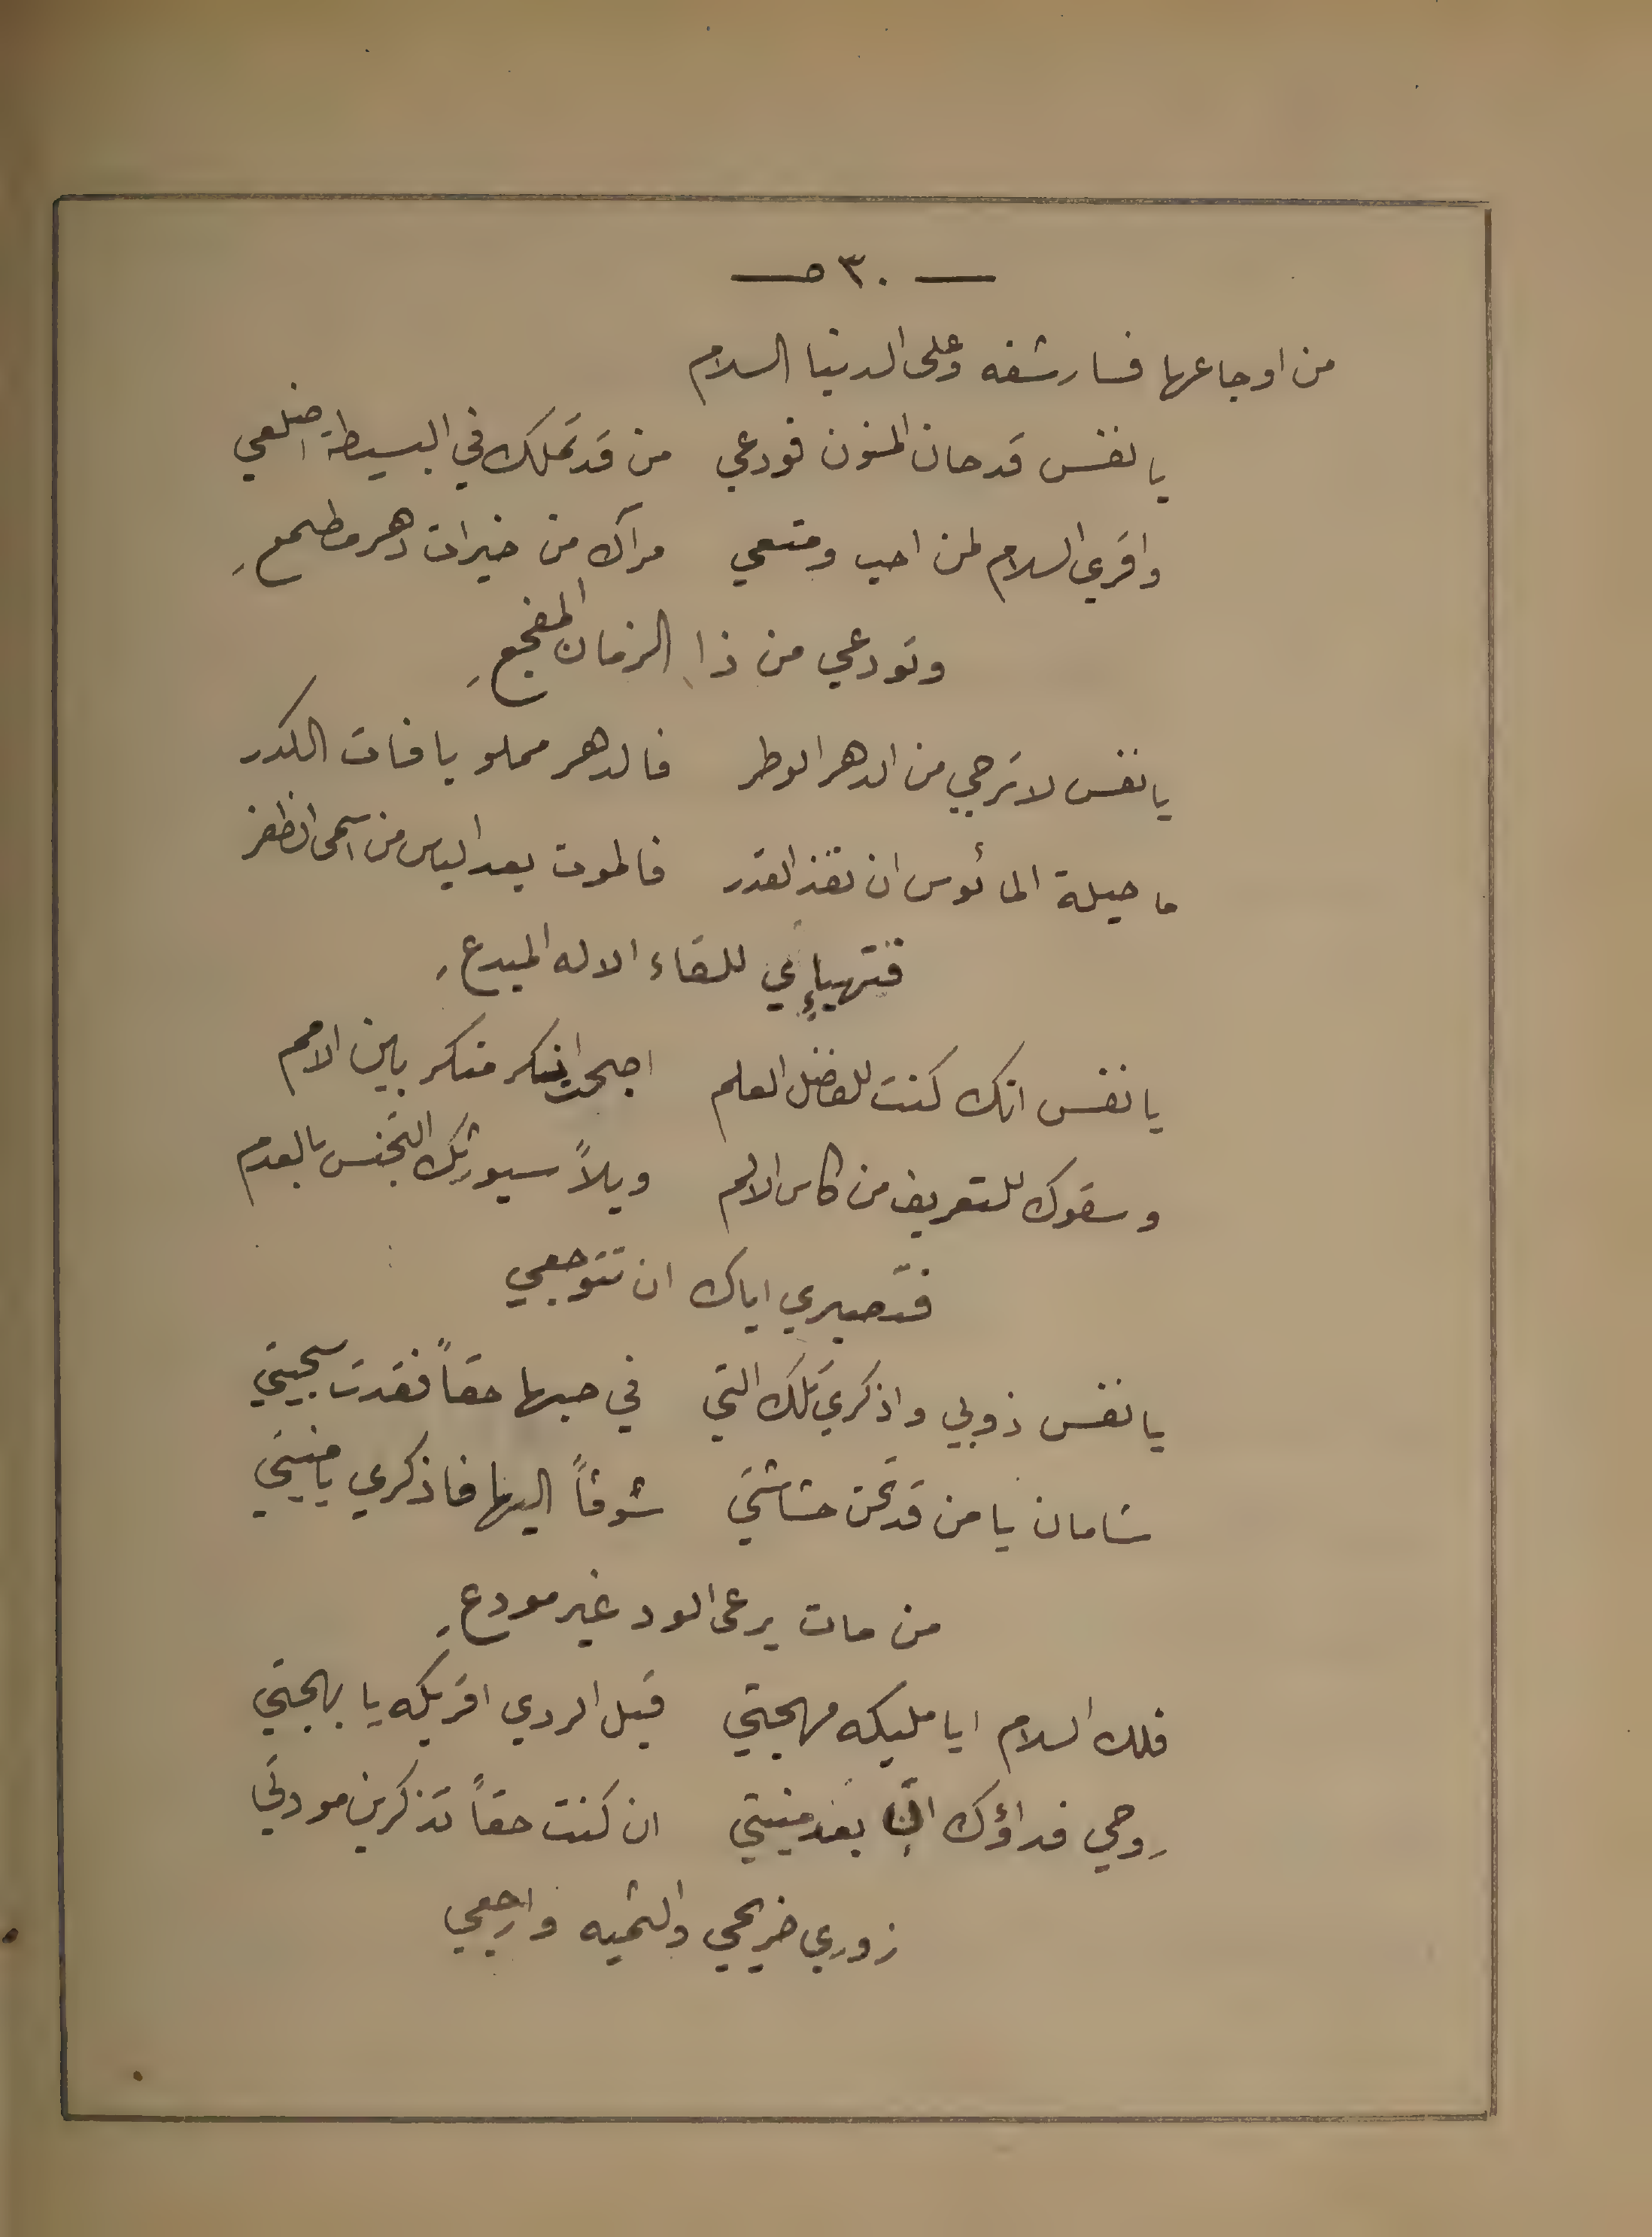 — ٣٠ ص —
من اوجاعها فسارشفه وعلى الدنيا السلام
يا نفس قد حان المنون فودعي من قد تملك في البسيطة اضلعي
واقري السلام لمن احب ومتعي مرآك من خيرات دهر مطمعِ
وتودعي من ذا الزمان المفجعِ
يا نفس لا ترجي من الدهر الوطر فالدهر مملو بافات الكدر
ما حيلة المأئوس ان نفذ القدر فالموت بعد الياس من اسمى الظفر
فتهيإي للقاء الاله المبدعِ
يا نفس انك كنت للفاضل العلم اجحدانكر منكر بين الامم
وسقوك للتعريف من كاس الالم ويلاً سيورثك التجنس بالعدم
فتصبري اياك ان تتوجعي
يا نفس ذوبي واذكري تلك التي في حبها حقاً فقدت سجيتي
شامان يا من قد تحن حشاشتي شوقاً اليها فاذكري يا منيتي
من مات يرعى الود غير مودعِ
فلك السلام ايا مليكه مهجتي قبل الردي اقريكه يا بهجتي
روحي فداؤك بعد منيتي ان كنت حقاً تذكرين مودتي
زوري ضريحي والثميه وارجعي